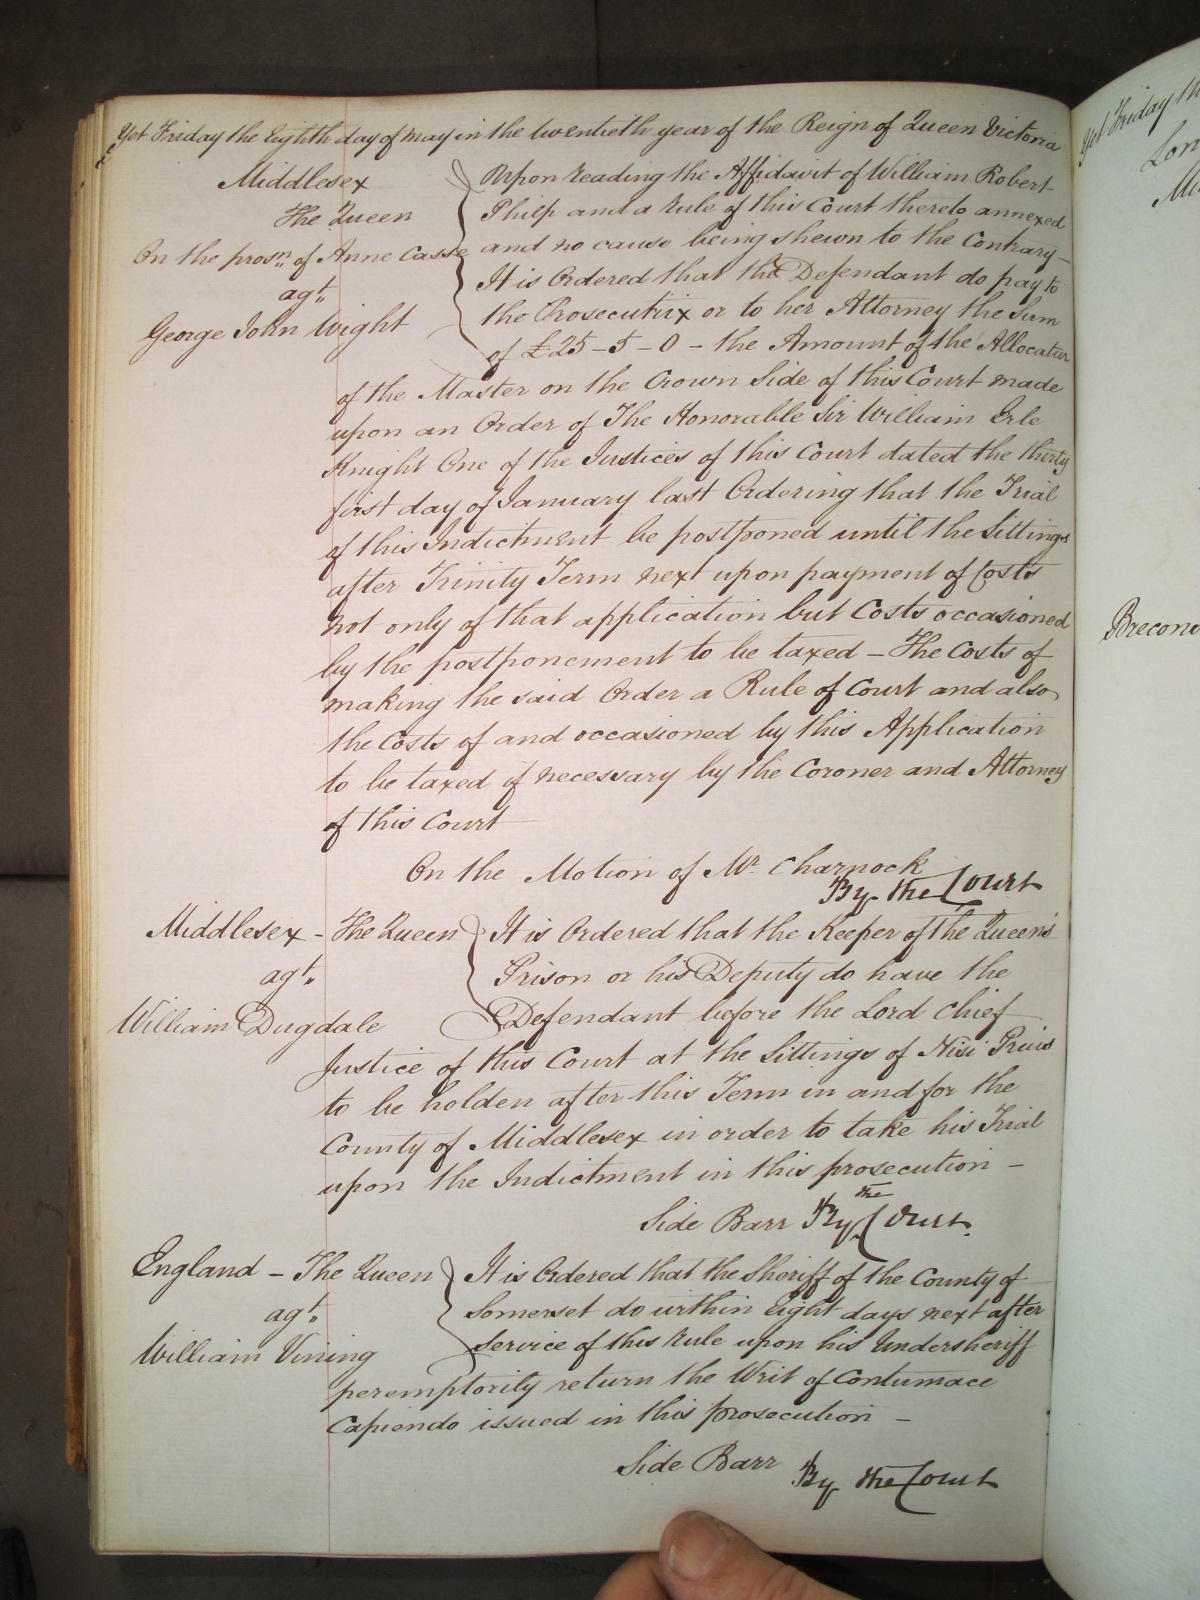 Yet Friday the Eighth day of May in the twentieth year of the Reign of Queen Victoria
Middlesex
The Queen
On the prosn. of Anne Casse
agt.
George John Wight
Upon reading the Affidavit of William Robert
Philp and a rule of this Court thereto annexed
and no cause being shewn to the Contrary –
It is Ordered that the Defendant do pay to
the Prosecutrix or to her Attorney the Sum
of £25–5–0 – the Amount of the Allocatur
of the Master on the Crown Side of this Court made
upon an Order of The Honorable Sir William Erle
Knight One of the Justices of this Court dated the thirty
first day of January last Ordering that the Trial
of this Indictment be postponed until the Sittings
after Trinity Term next upon payment of Costs
not only of that application but Costs occasioned
by the postponement to be taxed – The Costs of
making the said Order a Rule of Court and also
the Costs of and occasioned by this Application
to be taxed if necessary by the Coroner and Attorney
of this Court
On the Motion of Mr. Charnock
By the Court
Middlesex – The Queen
agt.
William Dugdale
It is Ordered that the Keeper of the Queen's
Prison or his Deputy do have the
Defendant before the Lord Chief
Justice of this Court at the Sittings of Nisi Prius
to be holden after this Term in and for the
County of Middlesex in order to take his Trial
upon the Indictment in this prosecution –
Side Barr By the Court.
England – The Queen
agt.
William Vining
It is Ordered that the Sheriff of the County of
Somerset do within Eight days next after
Service of this Rule upon his Undersheriff
peremptorily return the Writ of Contumace
Capiendo issued in this prosecution –
Side Barr By the Court
Yet Friday th
Lon
Brecon